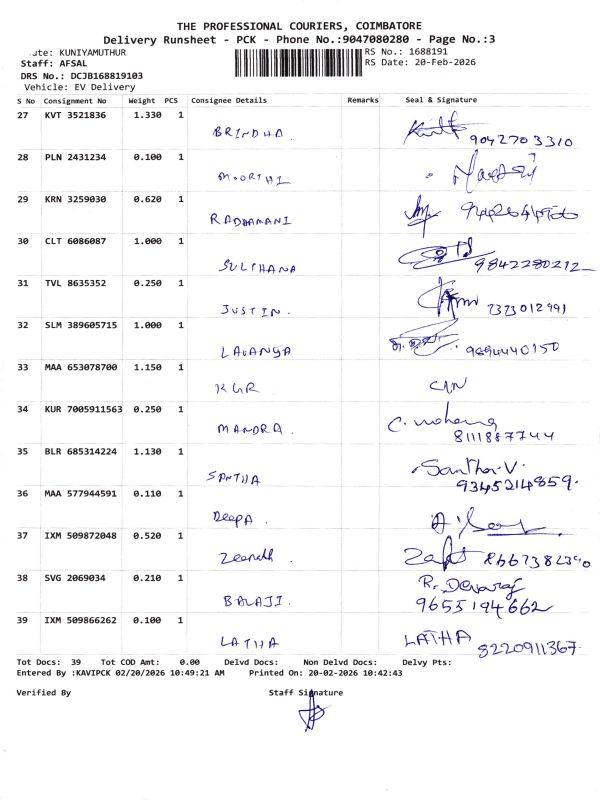 THE PROFESSIONAL COURIERS, COIMBATORE
Delivery Runsheet - PCK - Phone No.:9047080280 - Page No.:3
ute: KUNIYAMUTHUR RS No.: 1688191
Staff: AFSAL RS Date: 20-Feb-2026
DRS No.: DCJB168819103
Vehicle: EV Delivery
S No Consignment No Weight PCS Consignee Details Remarks Seal & Signature
27 KVT 3521836 1.330 1
BRINDHA. 9042703310
28 PLN 2431234 0.100 1
MOORTHI
29 KRN 3259030 0.620 1
RADHAMANI
30 CLT 6086087 1.000 1
SULTHANA 9842280212
31 TVL 8635352 0.250 1
JUSTIN. 7373012991
32 SLM 389605715 1.000 1
LAVANYA 9894440150
33 MAA 653078700 1.150 1
KGR
34 KUR 7005911563 0.250 1
MANDRA. C. mohana
8111887744
35 BLR 685314224 1.130 1
SANTHA Santha.V.
9345214859.
36 MAA 577944591 0.110 1
DEEPA.
37 IXM 509872048 0.520 1
Zeenath 8667382390
38 SVG 2069034 0.210 1 R. Devaraj
BALAJI. 9655194662
39 IXM 509866262 0.100 1
LATHA LATHA 8220911367.
Tot Docs: 39 Tot COD Amt: 0.00 Delvd Docs: Non Delvd Docs: Delvy Pts:
Entered By :KAVIPCK 02/20/2026 10:49:21 AM Printed On: 20-02-2026 10:42:43
Verified By Staff Signature